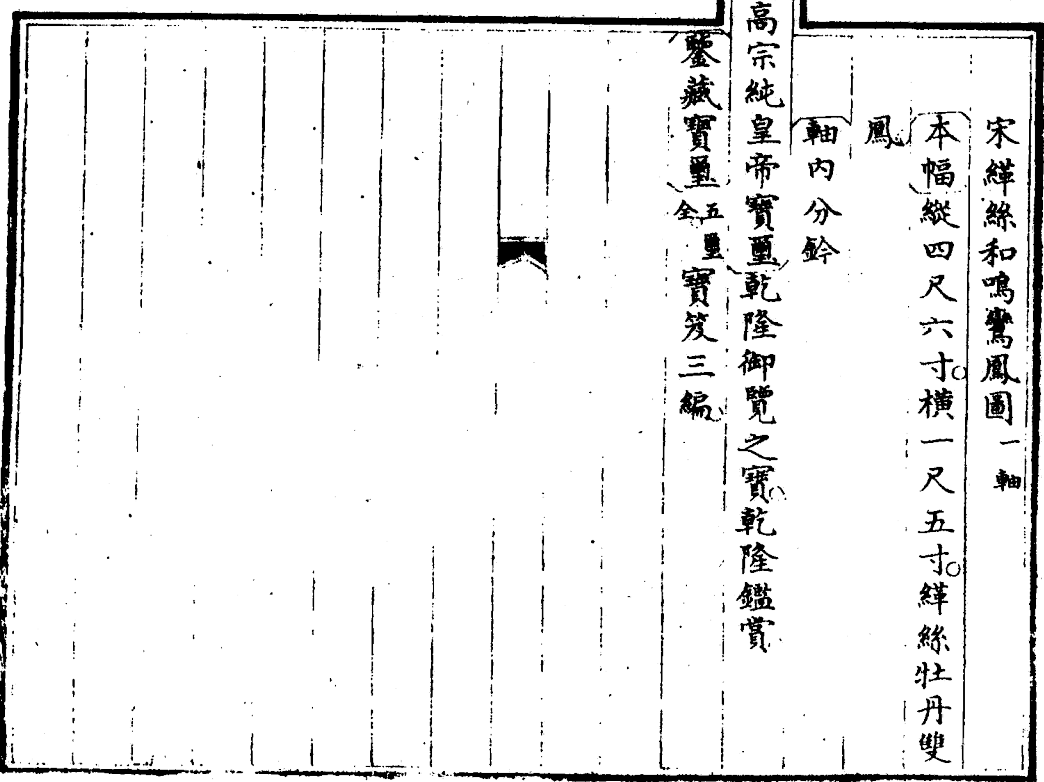 宋緙絲和鳴鸞鳳圖一軸
本幅縱四尺六寸橫一尺五寸緙絲牡丹雙
鳳
軸內分鈐
高宗純皇帝寶璽乾隆御覽之寶乾隆鑑賞
鑒藏寶璽五璽全寶笈三編